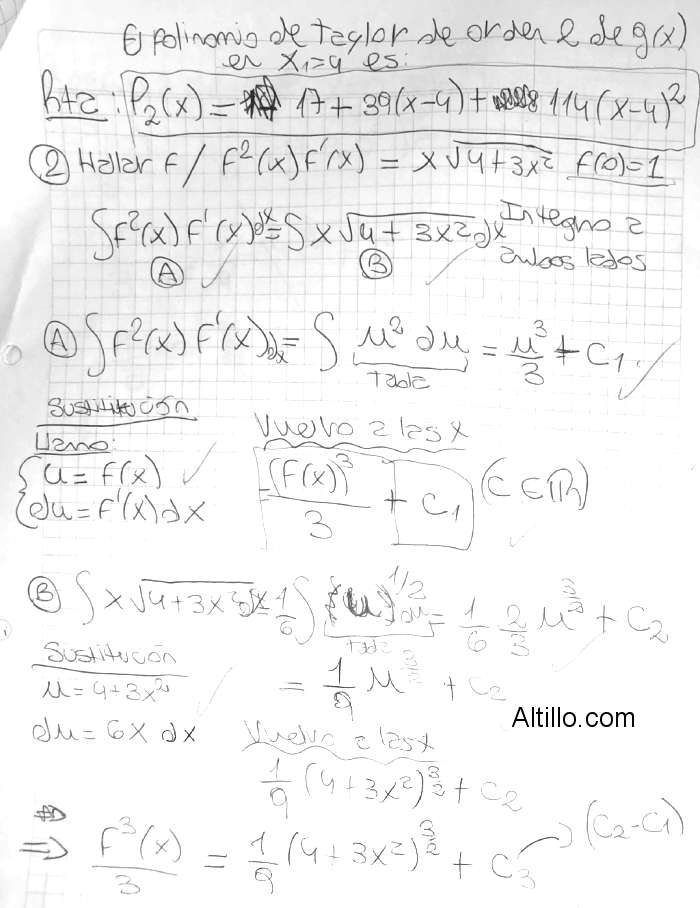 El polinomio de taylor de orden 2 de g(x)
en x₁=4 es:
Rta: P₂(x) = 17 + 39(x-4) + 114(x-4)²
② Hallar f / f²(x) f'(x) = x√4+3x² f(0)=1
∫f²(x) f'(x) dx = ∫ x√4+3x² dx Integro a
ambos lados
Ⓐ Ⓑ
Ⓐ ∫f²(x) f'(x) dx = ∫ u² du = u³/3 + C₁
tabla
Sustitución
Llamo: Vuelvo a las x
{ u = f(x) = (f(x))³/3 + C₁ (C ∈ ℝ)
{ du = f'(x) dx
Ⓑ ∫ x√4+3x² dx = 1/6 ∫ (u)^1/2 du = 1/6 2/3 u^3/2 + C₂
tabla
Sustitución
u = 4+3x² = 1/9 u^3/2 + C₂
du = 6x dx Vuelvo a las x
1/9 (4+3x²)^3/2 + C₂
Altillo.com
⇒ f³(x)/3 = 1/9 (4+3x²)^3/2 + C₃ → (C₂-C₁)